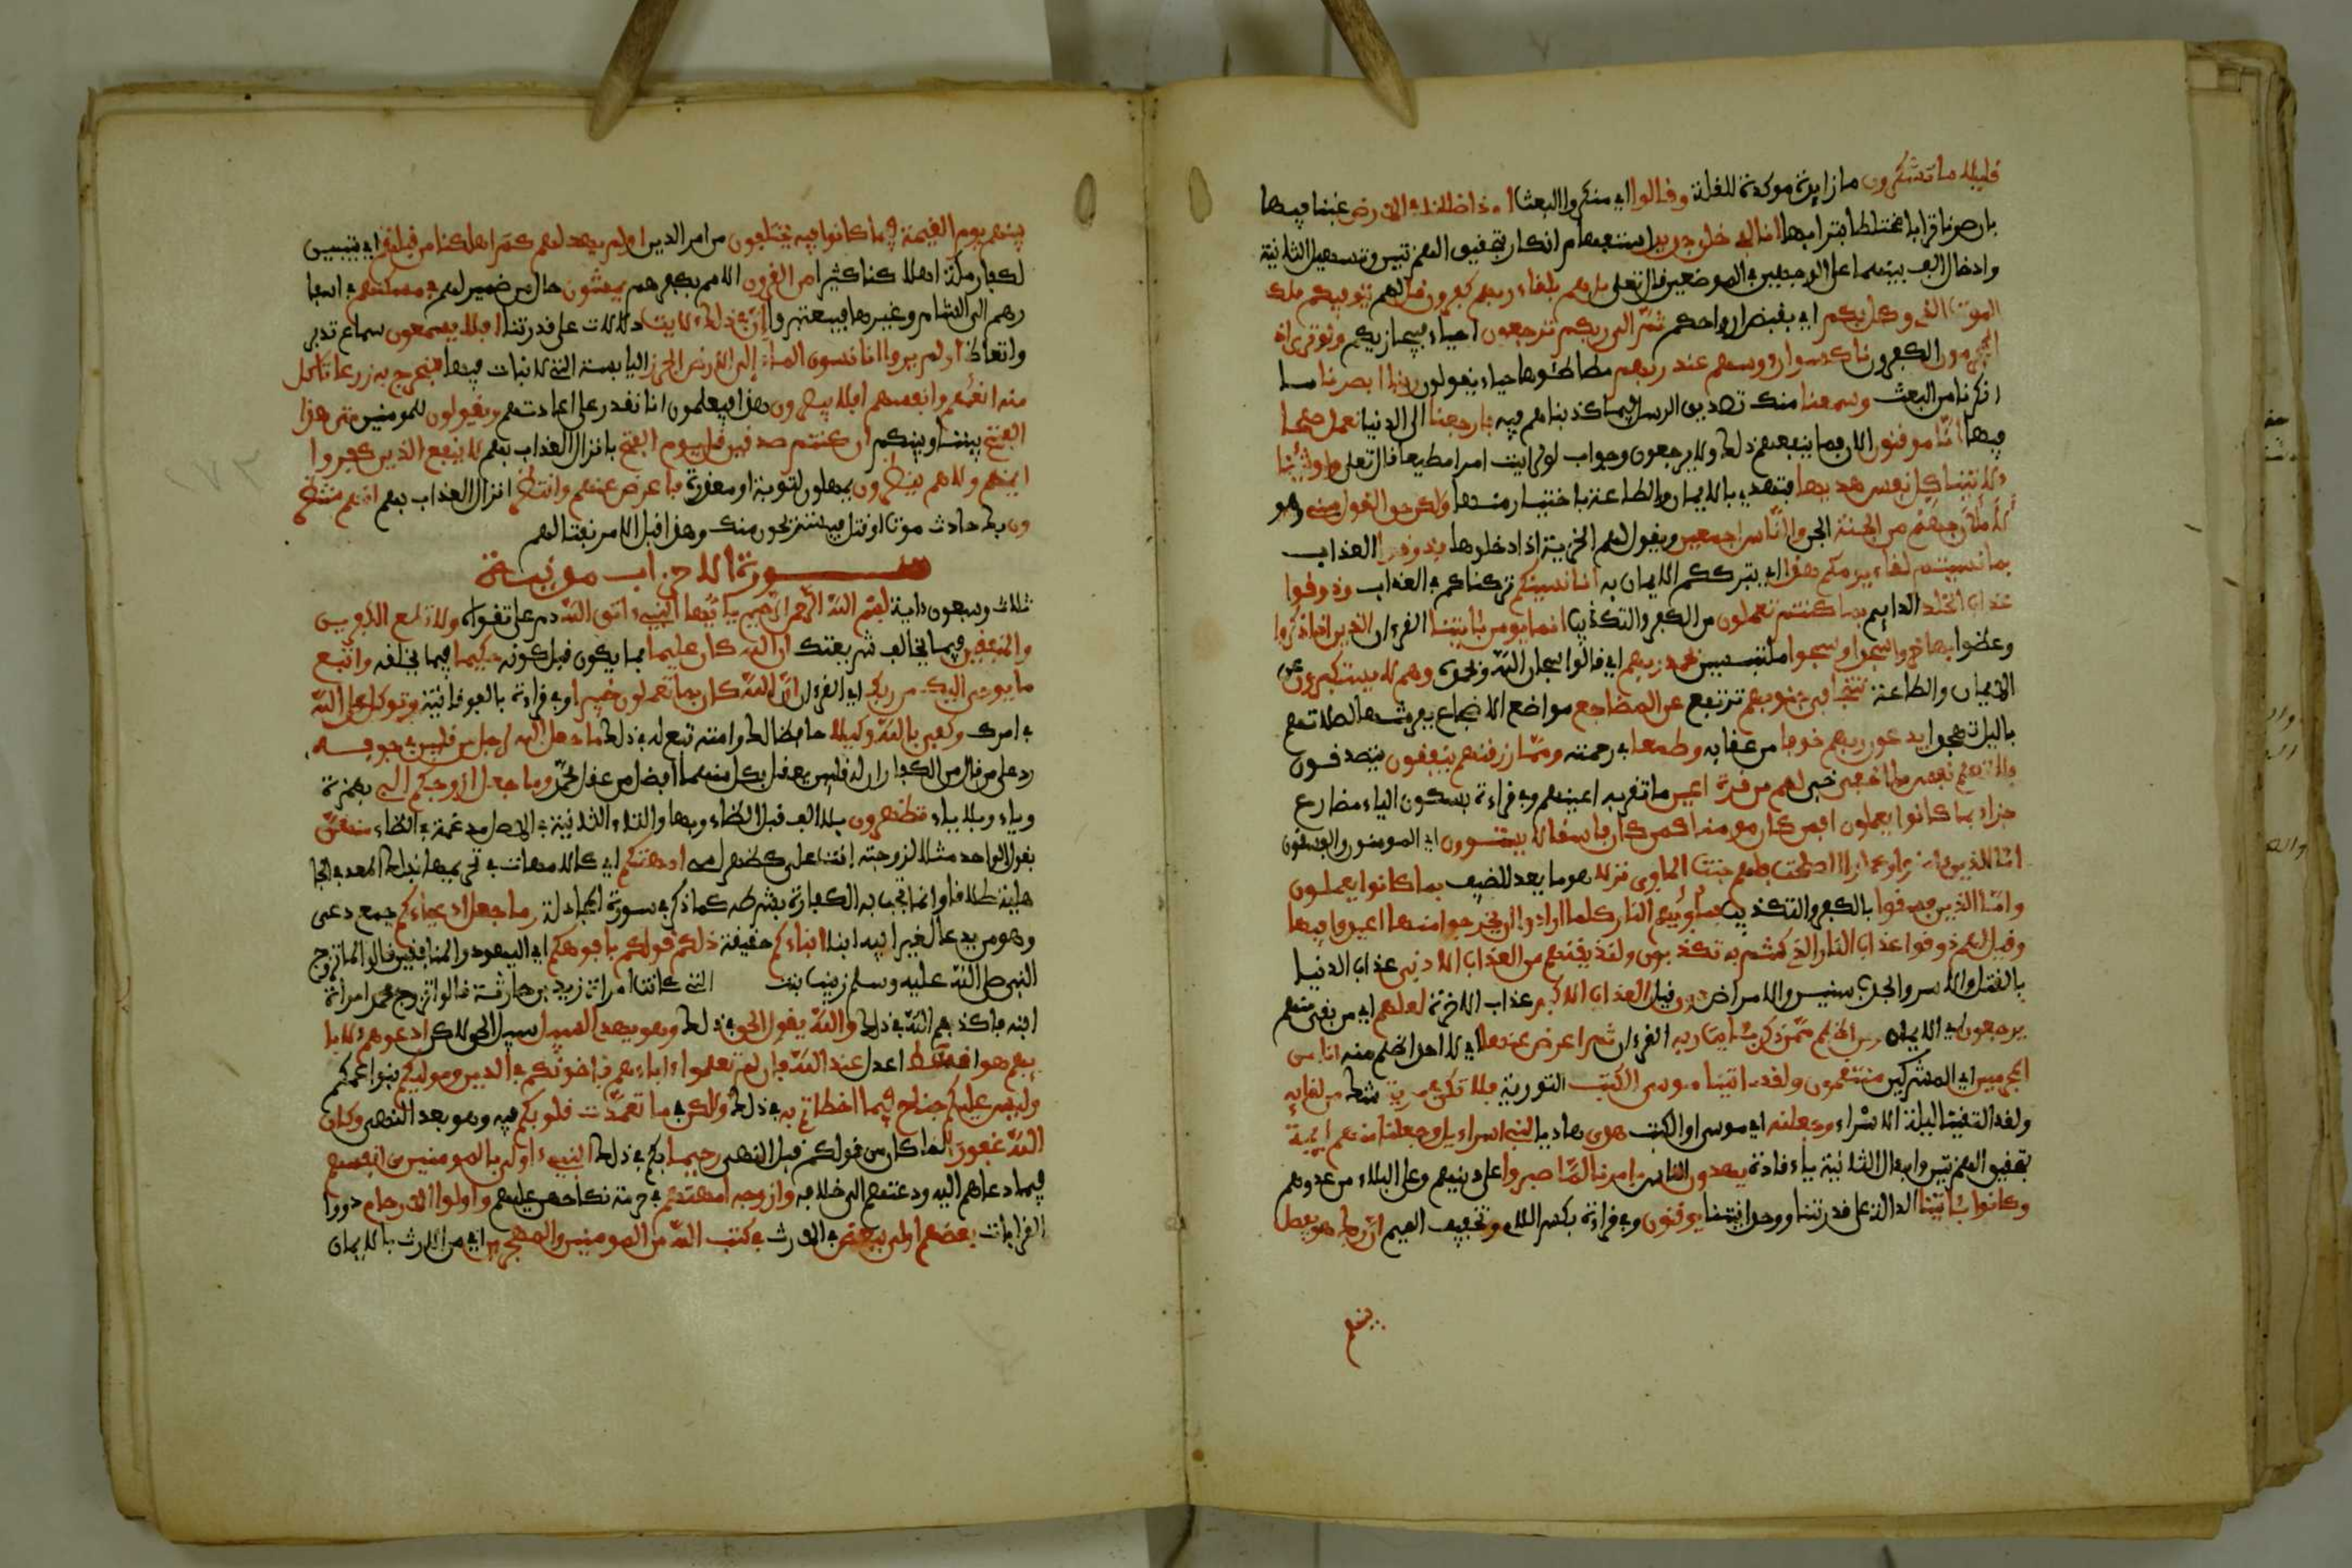 قليلا ما تشكرون ما زايدة موكدة للقلة وقالوا اي منكروا البعث اءذا ضللنا في الارض غبنا فيها
بان صرنا ترابا مختلطا بترابها انا لفي خلق جديد استفهام انكار بتحقيق الهمزتين وتسهيل الثانية
وادخال الف بينهما على الوجهين في الموضعين قال تعلى بل هم بلقاء ربهم كفرون قل لهم يتوفيكم ملك
الموت الذي وكل بكم اي بقبض ارواحكم ثم الى ربكم ترجعون احياء فيجازيكم ولو ترى اذ
المجرمون الكفرون ناكسوا رءوسهم عند ربهم مطاطئوها حياء يقولون ربنا ابصرنا ما
انكرنا من البعث وسمعنا منك تصديق الرسل فيما كذبناهم فيه فارجعنا الى الدنيا نعمل صلحا
فيها انا موقنون الان فما ينفعهم ذلك ولا يرجعون وجواب لو لرايت امرا فظيعا قال تعلى ولو شئنا
ءلاتينا كل نفس هديها فتهتدي بالايمان والطاعة باختيار منها ولكن حق القول مني وهو
لاملان جهنم من الجنة الجن والناس اجمعين ويقول لهم الخزنة اذا دخلوها فذوقوا العذاب
بما نسيتم لقاء يومكم هذا اي بترككم الايمان به انا نسينكم تركناكم في العذاب وذوقوا
عذاب الخلد الدايم بما كنتم تعملون من الكفر والتكذيب انما يومن بئايتنا القرءان الذين اذا ذكروا
وعظوا بها خروا سجدا وسبحوا متلبسين بحمد ربهم اي قالوا سبحان الله وبحمده وهم لا يستكبرون عن
الايمان والطاعة تتجافى جنوبهم ترتفع عن المضاجع مواضع الاضجاع بفرشها لصلاتهم
باليل تهجدا يدعون ربهم خوفا من عقابه وطمعا في رحمته ومما رزقنهم ينفقون يتصدقون
فلا تعلم نفس ما اخفي خبي لهم من قرة اعين ما تقر به اعينهم وفي قراءة بسكون الياء مضارع
جزاء بما كانوا يعملون افمن كان مومنا كمن كان فاسقا لا يستوون اي المومنون والفسقون
اما الذين ءامنوا وعملوا الصلحت فلهم جنت الماوى نزلا هو ما يعد للضيف بما كانوا يعملون
واما الذين فسقوا بالكفر والتكذيب فماويهم النار كلما ارادوا ان يخرجوا منها اعيدوا فيها
وقيل لهم ذوقوا عذاب النار الذي كنتم به تكذبون ولنذيقنهم من العذاب الادنى عذاب الدنيا
بالقتل والاسر والجدب سنين والامراض دون قبل العذاب الاكبر عذاب الاخرة لعلهم اي من بقي منهم
يرجعون الى الايمان ومن اظلم ممن ذكر بئايت ربه القرءان ثم اعرض عنها اي لا احد اظلم منه انا من
المجرمين اي المشركين منتقمون ولقد ءاتينا موسى الكتب التورية فلا تكن في مرية شك من لقايه
ولقد التقيا ليلة الاسراء وجعلنه اي موسى او الكتب هدى هاديا لبني اسراءيل وجعلنا منهم ايمة
بتحقيق الهمزتين وابدال الثانية ياء قادة يهدون الناس بامرنا لما صبروا على دينهم وعلى البلاء من عدوهم
وكانوا بئايتنا الدالة على قدرتنا ووحدانيتنا يوقنون وفي قراءة بكسر اللام وتخفيف الميم ان ربك هو يفصل
بينهم
بينهم يوم القيمة فيما كانوا فيه يختلفون من امر الدين اولم يهد لهم كم اهلكنا من قبلهم اي يتبين
لكفار مكة اهلاكنا كثيرا من القرون الامم بكفرهم يمشون حال من ضمير لهم في مسكنهم في اسفا
رهم الى الشام وغيرها فيعتبروا ان في ذلك لايت دلالات على قدرتنا افلا يسمعون سماع تدبر
واتعاظ اولم يروا انا نسوق الماء الى الارض الجرز اليابسة التي لا نبات فيها فنخرج به زرعا تاكل
منه انعمهم وانفسهم افلا يبصرون هذا فيعلمون انا نقدر على اعادتهم ويقولون للمومنين متى هذا
الفتح بيننا وبينكم ان كنتم صدقين قل يوم الفتح بانزال العذاب بهم لا ينفع الذين كفروا
ايمنهم ولا هم ينظرون يمهلون لتوبة او معذرة فاعرض عنهم وانتظر انزال العذاب بهم انهم منتظر
ون بك حادث موت او قتل فيستريحون منك وهذا قبل الامر بقتالهم
ســـــورة الاحزاب مدنية
ثلاث وسبعون ءاية بسم الله الرحمن الرحيم يايها النبيء اتق الله دم على تقواه ولا تطع الكفرين
والمنفقين فيما يخالف شريعتك ان الله كان عليما بما يكون قبل كونه حكيما فيما يخلقه واتبع
ما يوحى اليك من ربك اي القرءان ان الله كان بما تعملون خبيرا وفي قراءة بالفوقانية وتوكل على الله
في امرك وكفى بالله وكيلا حافظا لك وامته تبع له في ذلك ما جعل الله لرجل من قلبين في جوفه
ردا على من قال من الكفار ان له قلبين يعقل بكل منهما افضل من عقل محمد وما جعل ازوجكم الي بهمزة
وياء وبلا ياء تظهرون بلا الف قبل الظاء وبها والتاء الثانية في الاصل مدغمة في الظاء منهن
يقول الواحد مثلا لزوجته انت علي كظهر امي امهتكم اي كالامهات في تحريمها بذلك المعد في الجا
هلية طلاقا وانما تجب به الكفارة بشرطه كما ذكر في سورة المجادلة وما جعل ادعياءكم جمع دعي
وهو من يدعا لغير ابيه ابنا ابناءكم حقيقة ذلكم قولكم بافوهكم اي اليهود والمنافقين قالوا لما تزوج
النبي صلى الله عليه وسلم زينب بنت التي كانت امراة زيد بن حارثة قالوا تزوج محمد امراة
ابنه فاكذبهم الله في ذلك والله يقول الحق في ذلك وهو يهدي السبيل سبيل الحق لكن ادعوهم لابا
يهم هو اقسط اعدل عند الله فان لم تعلموا ءاباءهم فاخونكم في الدين ومواليكم بنوا عمكم
وليس عليكم جناح فيما اخطاتم به في ذلك ولكن في ما تعمدت قلوبكم فيه وهو بعد النهي وكان
الله غفورا لما كان من قولكم قبل النهي رحيما بكم في ذلك النبيء اولى بالمومنين من انفسهم
فيما دعاهم اليه ودعتهم الى خلافه وازوجه امهتهم في حرمة نكاحهن عليهم واولوا الارحام ذووا
القرابات بعضهم اولى ببعض في الارث في كتب الله من المومنين والمهجرين اي من الارث بالايمان